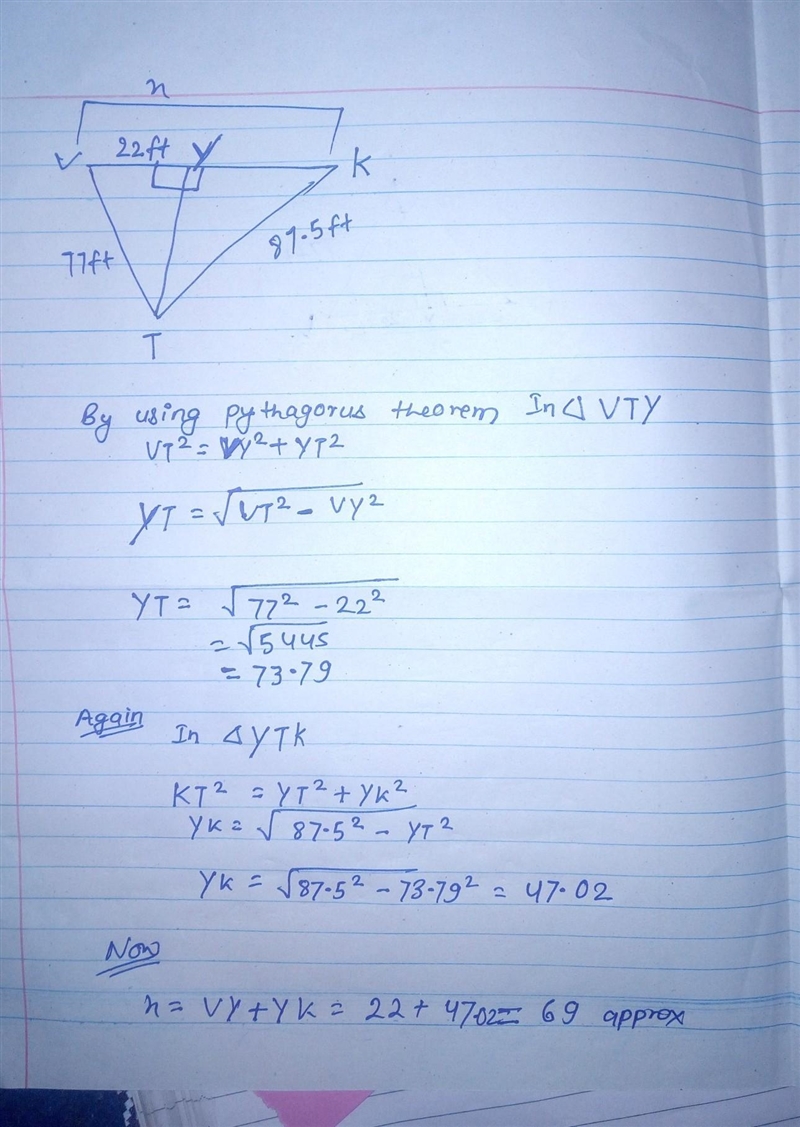 x
22ft Y
V K
77ft 87.5ft
T
By using pythagorus theorem In △ VTY
VT² = VY² + YT²
YT = √VT² - VY²
YT = √77² - 22²
= √5445
= 73.79
Again In △YTK
KT² = YT² + YK²
YK = √87.5² - YT²
YK = √87.5² - 73.79² = 47.02
Now
x = VY + YK = 22 + 47.02 = 69 approx